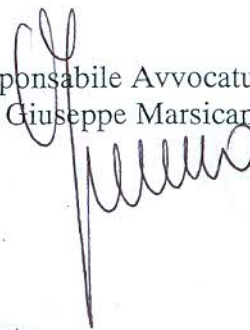 ponsabile Avvocatu
Giuseppe Marsican